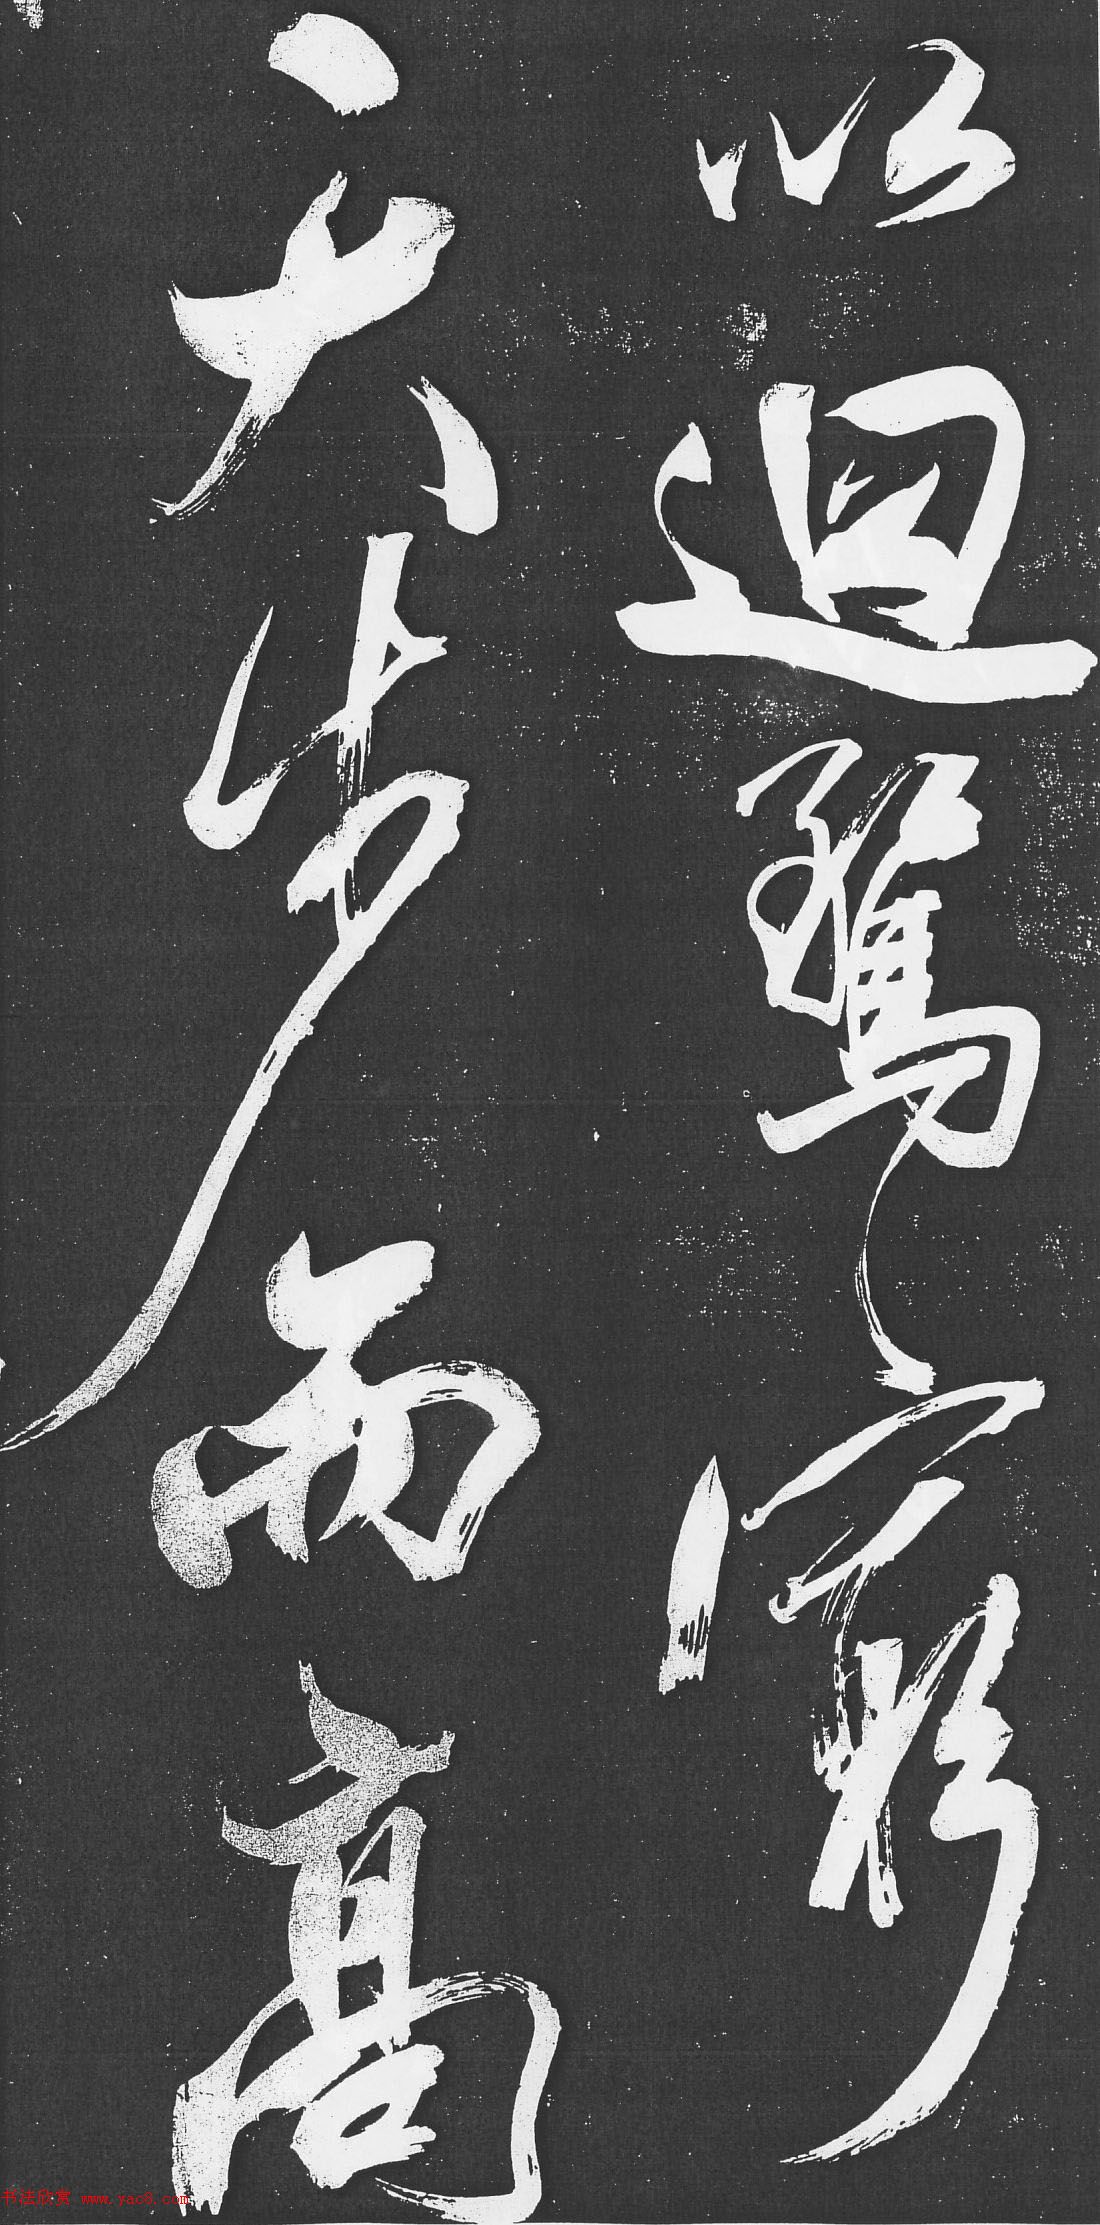 以迴騖窮
天步而高
书法欣赏 www.yac8.com